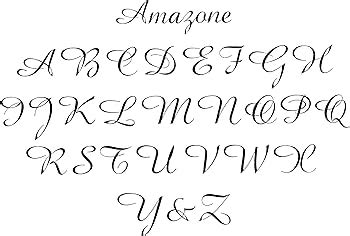 Amazone
A B C D E F G H
I J K L M N O P Q
R S T U V W X
Y & Z